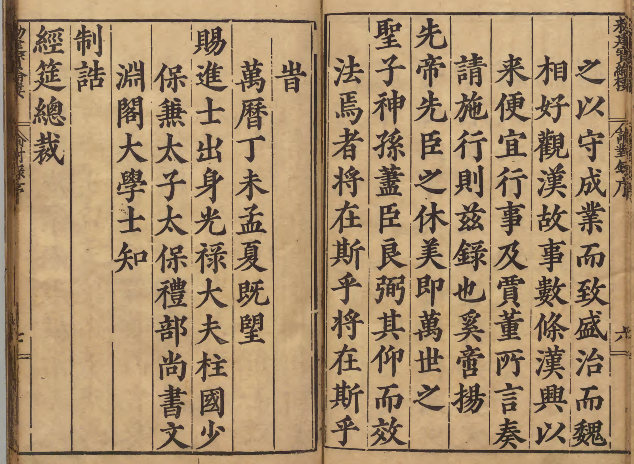 之以守成業而致盛治而魏
相好觀漢故事數條漢興以
來便宜行事及賈董所言奏
請施行則兹録也奚啻揚
先帝先臣之休美即萬世之
聖子神孫藎臣良弼其仰而效
法焉者将在斯乎将在斯乎
旹
萬曆丁未孟夏既朢
賜進士出身光禄大夫柱國少
保兼太子太保禮部尚書文
淵閣大學士知
制誥
經筵總裁